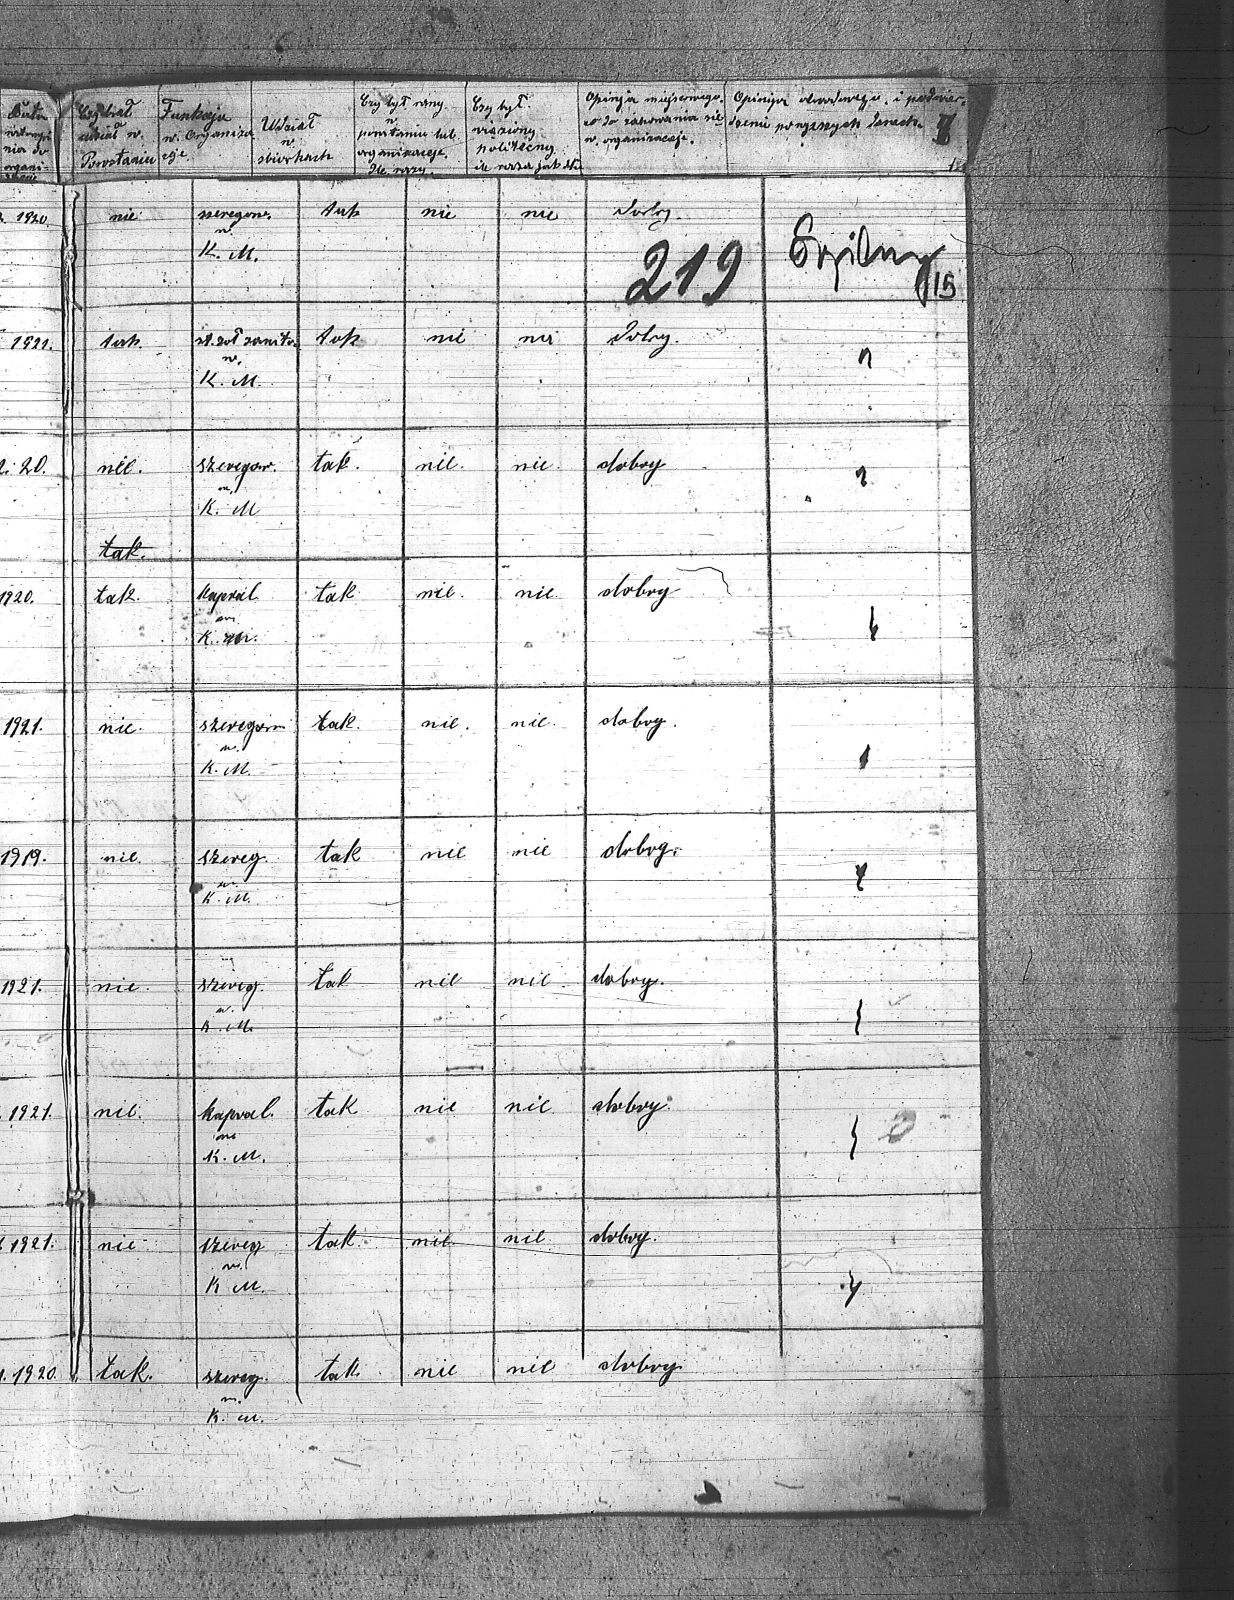 Data
Czy brał udział w. Powstaniu
Funkcja w. Organiza cyi
Udział w. zbiórkach
Czy był ranny w powstaniu lub organizacje. Ile razy.
Czy był więziony politeczny ile razy jak dł.
Opinja miejscowego. co do zachowania się w. organizacje.
Opinija obwodowego. i potwier- dzenie powyższych danech.
1920. nie szeregow. tak nie nie dobry.
w.
K. M.
219
15
1921. tak tak nie nie dobry.
w.
K. M.
20. nie. szeregow. tak. nie. nie. dobry
w.
K. M
tak.
1920. tak. kapral tak nie. nie dobry
K. M.
1921. nie. szeregow tak. nie. nie. dobry.
w.
K. M.
1919. nie. szereg. tak nie nie dobry.
w.
K. M.
1921. nie. szereg. tak nie nie. dobry.
w.
K. M.
1921. nie. kapral. tak nie nie dobry.
K. M.
1921. nie szereg tak. nie nie dobry.
w.
K M.
1920. tak. szereg. tak nie nie dobry
w.
K. M.